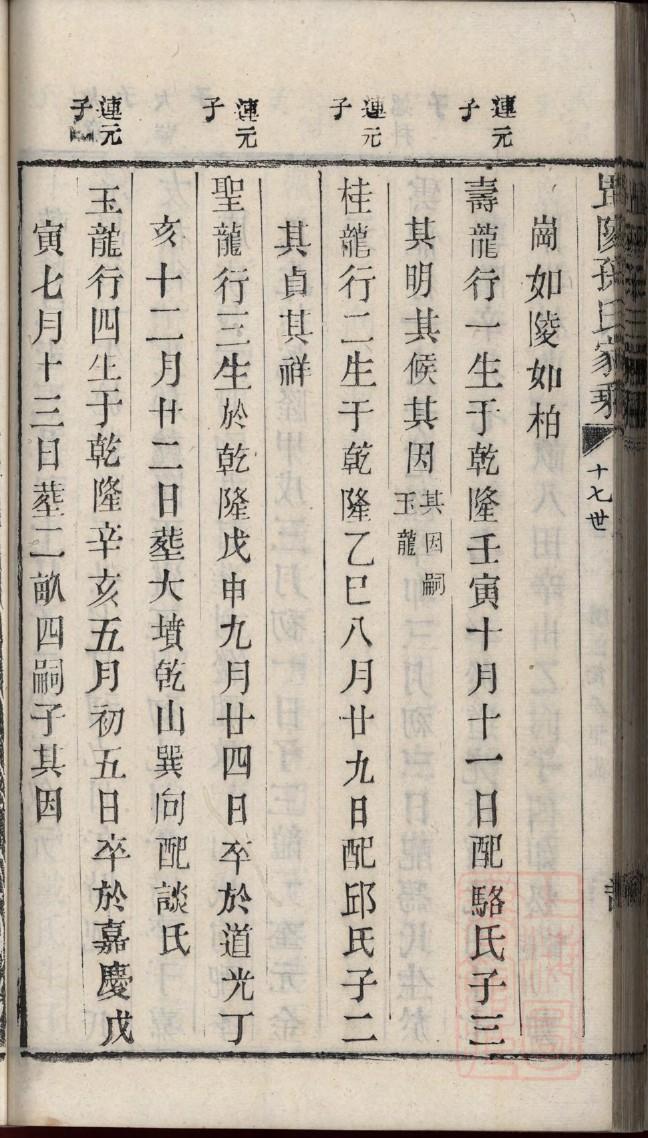 毘陵孫氏家乘
十七世
崗如陵如柏
連元子
壽龍行一生于乾隆壬寅十月十一日配駱氏子三
其明其候其因其因嗣玉龍
連元子
桂龍行二生于乾隆乙巳八月廿九日配邱氏子二
其貞其祥
連元子
聖龍行三生於乾隆戊申九月廿四日卒於道光丁
亥十二月廿二日塟大墳乾山巽向配談氏
連元子
玉龍行四生于乾隆辛亥五月初五日卒於嘉慶戊
寅七月十三日塟二畝四嗣子其因